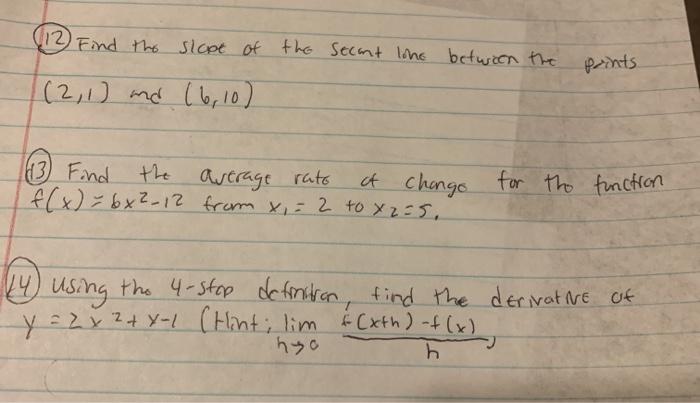 (12) Find the slope of the secant line between the points
(2,1) and (6,10)
(13) Find the average rate of change for the function
f(x)=6x²-12 from x₁=2 to x₂=5.
(14) Using the 4-step definition, find the derivative of
y=2x²+x-1 (Hint: lim f(x+h)-f(x)
h→0 h )